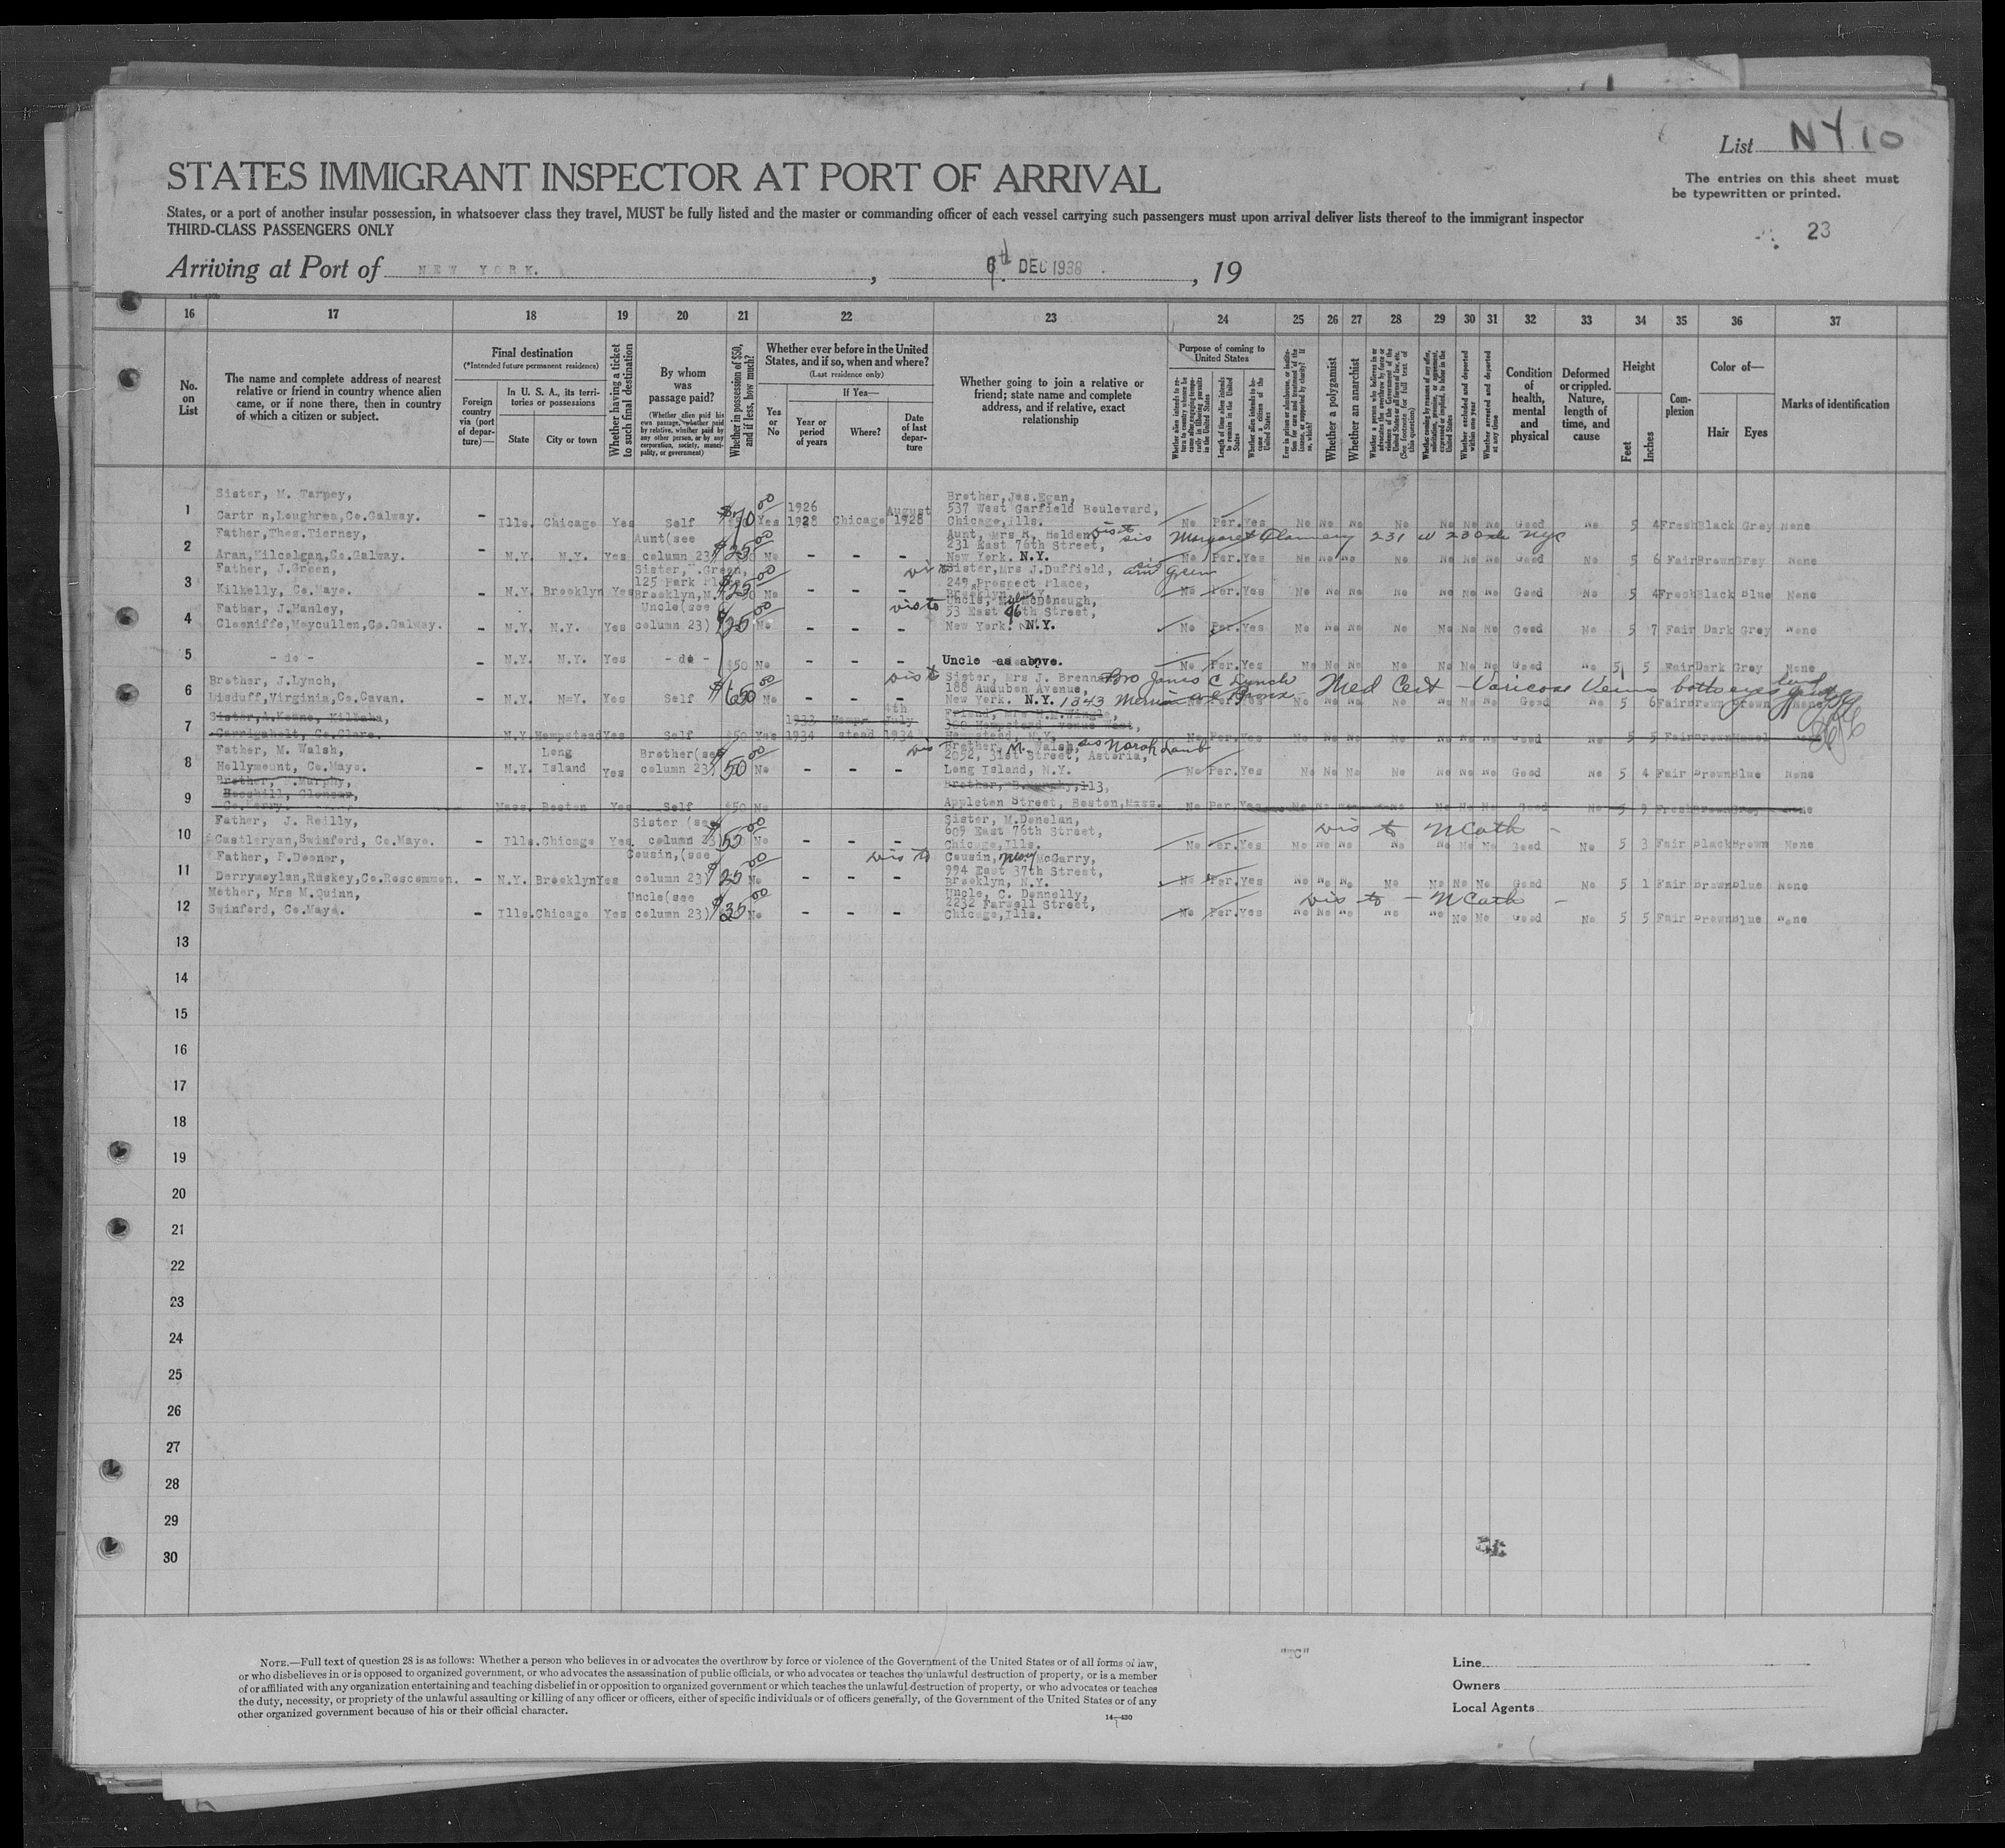 List NY 10
STATES IMMIGRANT INSPECTOR AT PORT OF ARRIVAL
The entries on this sheet must
be typewritten or printed.
States, or a port of another insular possession, in whatsoever class they travel, MUST be fully listed and the master or commanding officer of each vessel carrying such passengers must upon arrival deliver lists thereof to the immigrant inspector
THIRD-CLASS PASSENGERS ONLY
23
Arriving at Port of NEW YORK. , DEC 1938 , 19
16 17 18 19 20 21 22 23 24 25 26 27 28 29 30 31 32 33 34 35 36 37
No. on List
The name and complete address of nearest relative or friend in country whence alien came, or if none there, then in country of which a citizen or subject.
Final destination
(*Intended future permanent residence)
Foreign country via (port of departure)—
In U. S. A., its territories or possessions
State
City or town
Whether having a ticket to such final destination
By whom was passage paid?
(Whether alien paid his own passage, whether paid by relative, whether paid by any other person, or by any corporation, society, municipality, or government)
Whether in possession of $50, and if less, how much?
Whether ever before in the United States, and if so, when and where?
(Last residence only)
Yes or No
If Yes—
Year or period of years
Where?
Date of last departure
Whether going to join a relative or friend; state name and complete address, and if relative, exact relationship
Purpose of coming to United States
Length of time alien intends to remain in the United States
Whether alien intends to become a citizen of the United States
Whether a polygamist
Whether an anarchist
Whether excluded and deported within one year
Whether arrested and deported at any time
Condition of health, mental and physical
Deformed or crippled. Nature, length of time, and cause
Height
Feet
Inches
Complexion
Color of—
Hair
Eyes
Marks of identification
1 Sister, M. Tarpey, Brother, Jas. Egan,
1926 August 537 West Garfield Boulevard,
Cartron, Loughrea, Co. Galway. - Ills. Chicago Yes Self $70.00 Yes 1928 Chicago 1928 Chicago, Ills. No Per. Yes No No No No No No No Good No 5 4 Fresh Black Grey None
2 Father, Thos. Tierney, Aunt (see Aunt, Mrs R. Holden, vis to sis Margaret Flannery 231 W 230 NYC
231 East 76th Street,
Aran, Kilcolgan, Co. Galway. - N.Y. N.Y. Yes column 23) $25.00 No - - - New York. N.Y. No Per. Yes No No No No No No No Good No 5 6 Fair Brown Grey None
3 Father, J. Green, Sister, Green, Sister, Mrs J. Duffield, Green
125 Park 249 Prospect Place,
Kilkelly, Co. Mayo. - N.Y. Brooklyn Yes Brooklyn, N.Y. $25.00 No - - - Brooklyn, N.Y. No Per. Yes No No No No No No No Good No 5 4 Fresh Black Blue None
4 Father, J. Manley, Uncle (see vis to Uncle, McDonough,
53 East 96th Street,
Cloonniffe, Moycullen, Co. Galway. - N.Y. N.Y. Yes column 23) $25.00 No - - - New York. N.Y. No Per. Yes No No No No No No No Good No 5 7 Fair Dark Grey None
5 - do - - N.Y. N.Y. Yes - do - $50 No - - - Uncle as above. No Per. Yes No No No No No No No Good No 5 5 Fair Dark Grey None
6 Brother, J. Lynch, vis to Sister, Mrs J. Brennan, Bro James C Lynch Med Cert - Varicose Veins both
188 Audubon Avenue,
Lisduff, Virginia, Co. Cavan. - N.Y. N.Y. Yes Self No - - - New York. N.Y. 1343 Bronx No Per. Yes No No No No No No No Good No 5 6 Fair Brown Brown None
7 Sister, A. Keane, Kilbaha, 4th
1933 Hemp- July
Carrigaholt, Co. Clare. N.Y. Hempstead Yes Self $50 Yes 1934 stead 1934 Hempstead, N.Y. No Per. Yes No No No No No No No Good No 5 5 Fair Brown Hazel None
8 Father, M. Walsh, Long Brother (see vis Brother, M. Walsh, sis Norah
2052, 31st Street, Astoria,
Hollymount, Co. Mayo. - N.Y. Island Yes column 23) $50.00 No - - - Long Island, N.Y. No Per. Yes No No No No No No No Good No 5 4 Fair Brown Blue None
9 Brother, Murphy, Brother, B. Murphy, 113,
Mass. Boston Yes Self $50 No Appleton Street, Boston, Mass. No Per. Yes Good No 5 9 Fresh Brown Grey None
10 Father, J. Reilly, Sister (see Sister, M. Donelan, vis to N Cath -
609 East 76th Street,
Castleryan, Swinford, Co. Mayo. - Ills. Chicago Yes column 23) No - - - Chicago, Ills. No Per. Yes No No No No No No No Good No 5 3 Fair Black Brown None
11 Father, P. Dooner, Cousin, (see vis to Cousin, Mary McGarry,
994 East 37th Street,
Derrymoylan, Ruskey, Co. Roscommon. - N.Y. Brooklyn Yes column 23) $25.00 No - - - Brooklyn, N.Y. No Per. Yes No No No No No No No Good No 5 1 Fair Brown Blue None
12 Mother, Mrs M. Quinn, Uncle (see Uncle, C. Donnelly, vis to - N Cath -
2232 Farsell Street,
Swinford, Co. Mayo. - Ills. Chicago Yes column 23) $35.00 No - - - Chicago, Ills. No Per. Yes No No No No No No No Good No 5 5 Fair Brown Blue None
13
14
15
16
17
18
19
20
21
22
23
24
25
26
27
28
29
30
NOTE.—Full text of question 28 is as follows: Whether a person who believes in or advocates the overthrow by force or violence of the Government of the United States or of all forms of law,
or who disbelieves in or is opposed to organized government, or who advocates the assassination of public officials, or who advocates or teaches the unlawful destruction of property, or is a member
of or affiliated with any organization entertaining and teaching disbelief in or opposition to organized government or which teaches the unlawful destruction of property, or who advocates or teaches
the duty, necessity, or propriety of the unlawful assaulting or killing of any officer or officers, either of specific individuals or of officers generally, of the Government of the United States or of any
other organized government because of his or their official character.
14—430
"TC"
Line
Owners
Local Agents